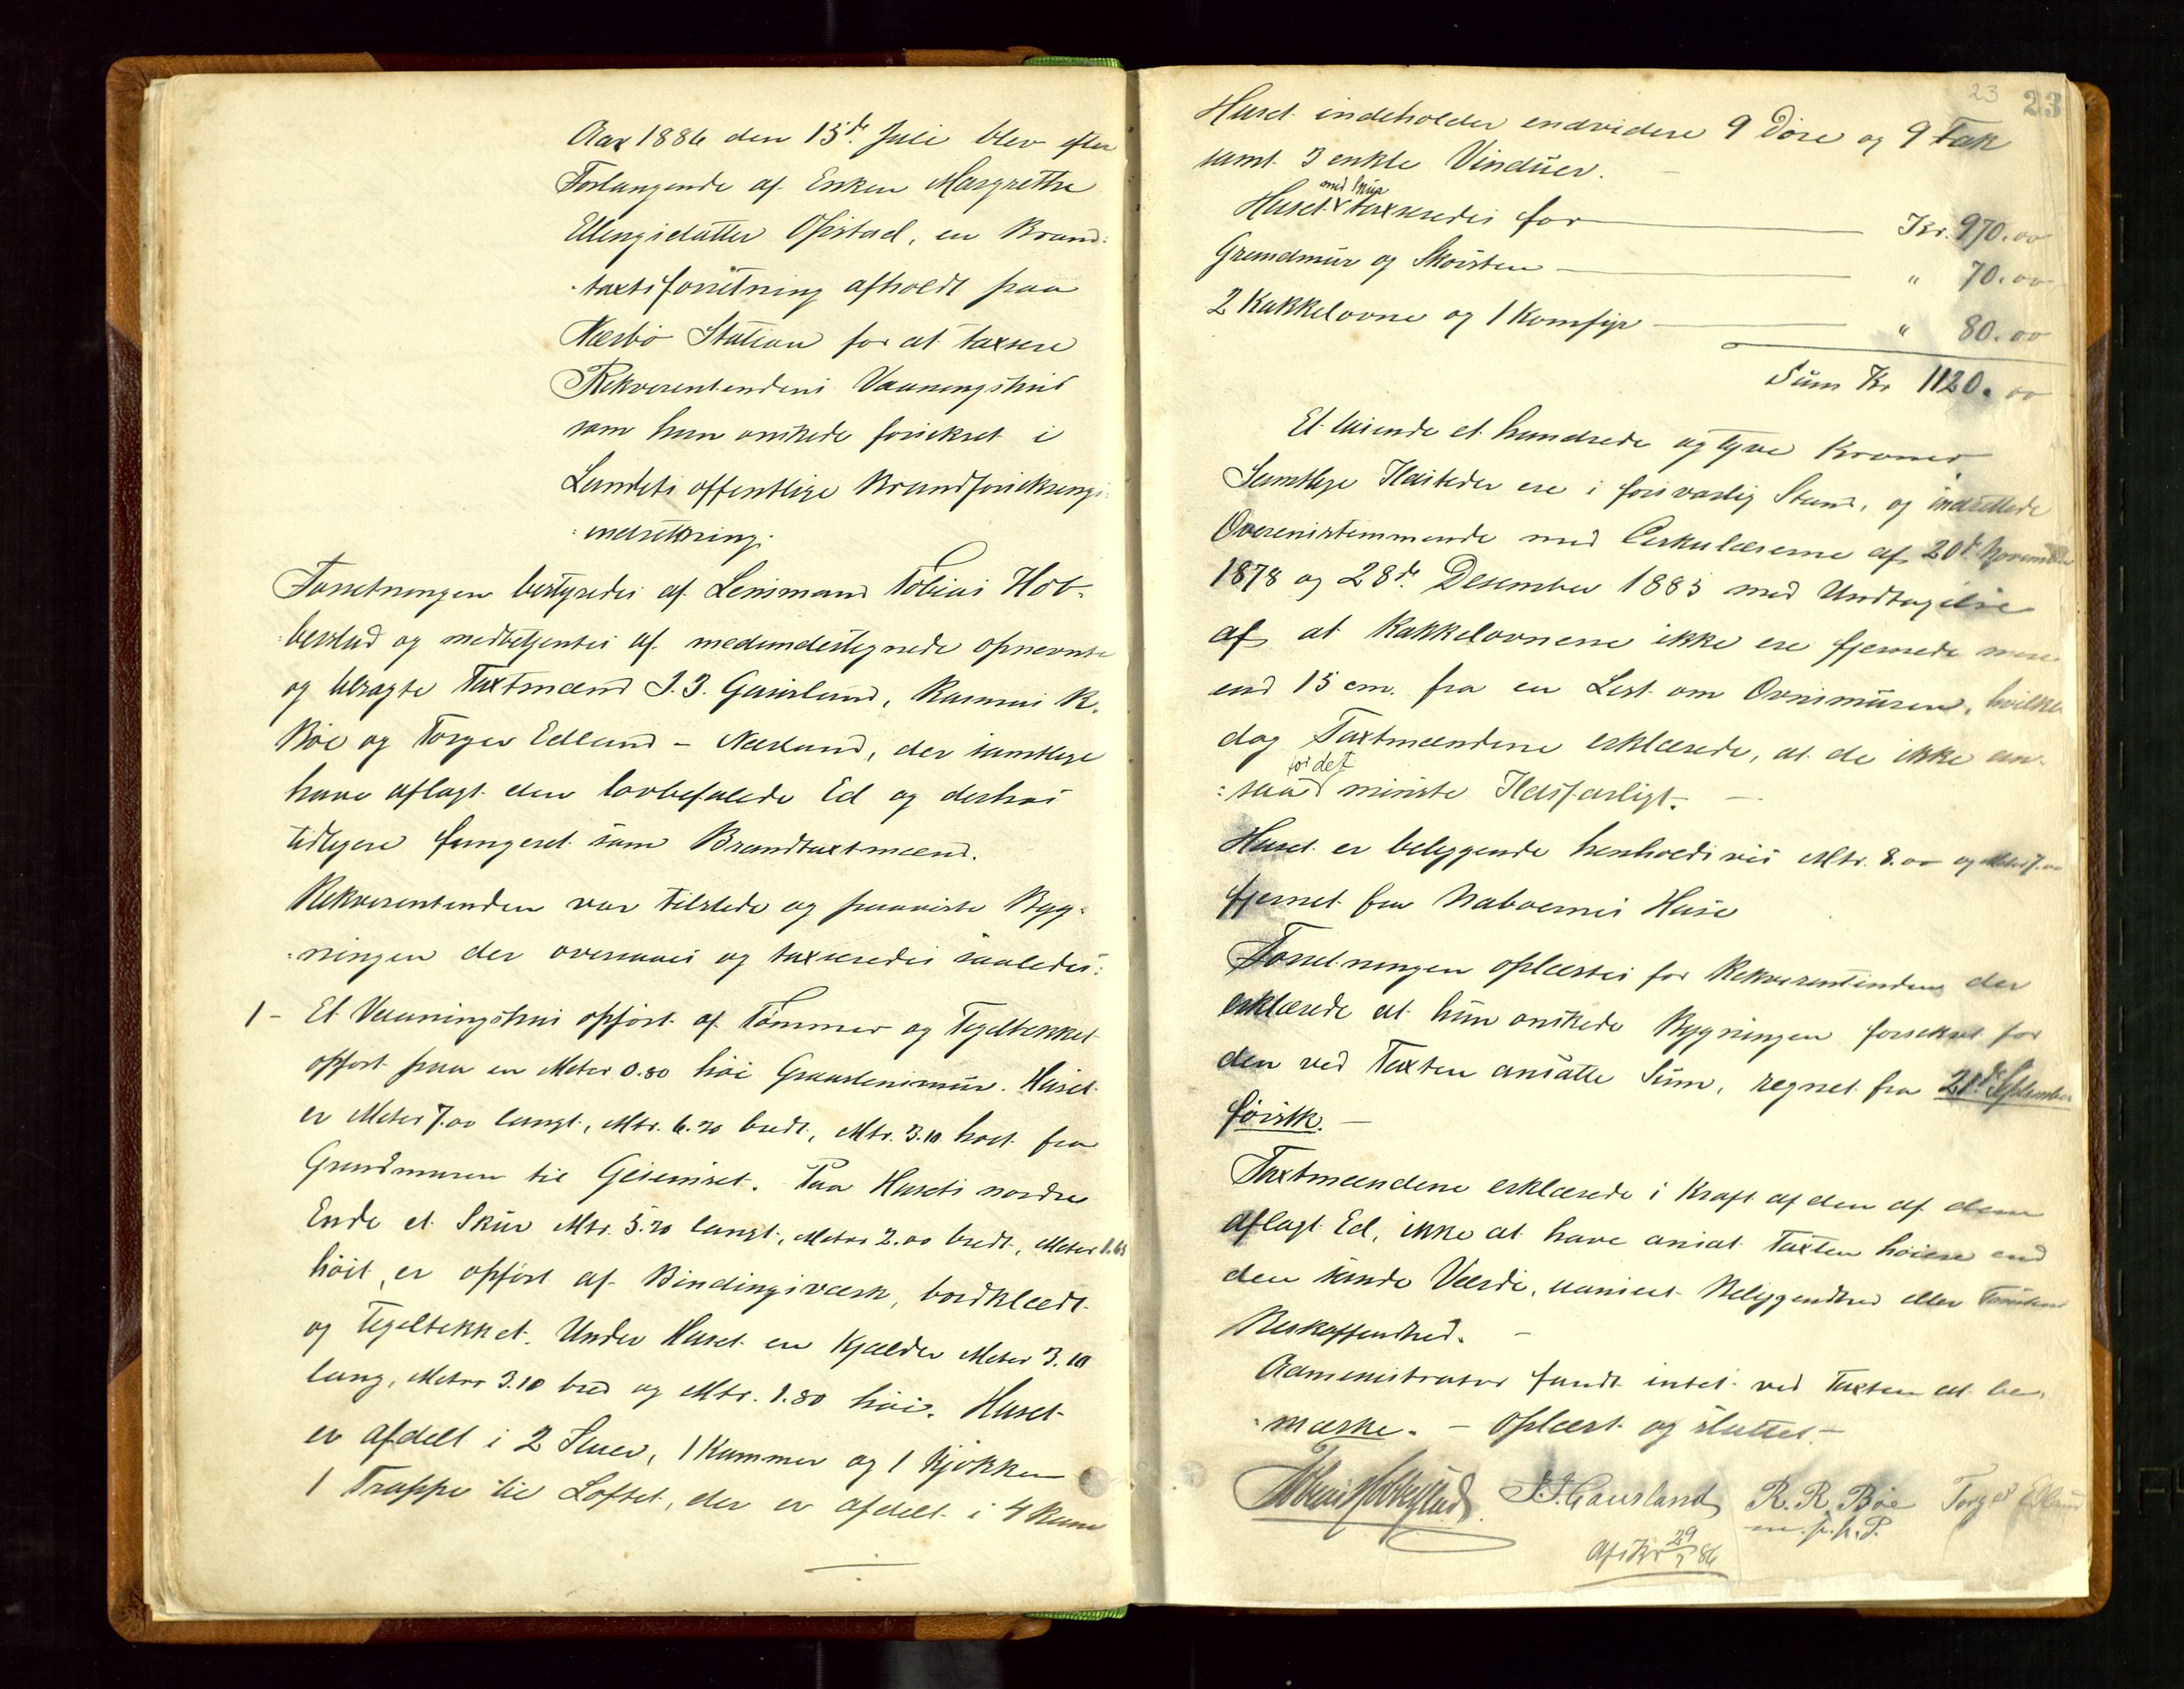 Aar 1886 den 15de Juli blev efter
Forlangende af Enken Margrethe
Ellingsdatter Opstad, en Brand-
-taxtsforretning afholdt paa
Nærbø Station for at taxere
Rekverentendens Vaaningshus
som hun ønskede forsikret i
Landets offentlige Brandforsikrings-
-indretning.
Forretningen bestyredes af Lensmand Tobias Hob-
-berstad og medbetjentes af medundertegnede opnevnte
og beragte Taxtmænd J. J. Gausland, Rasmus R.
Bøe og Torger Edland - Nærland, der samtlige
have aflagt den lovbefalede Ed og derhos
tidligere fungeret som Brandtaxtmænd.
Rekverentenden var tilstede og paaviste Byg-
-ningen der oversaaes og taxeredes saaledes:
1- Et Vaaningshus opført af Tømmer og Tegltekket
opført paa en Meter 0.80 høi Graastensmur. Huset
er Meter 7.00 langt, Mtr. 6.20 bredt, Mtr. 3.10 høit fra
Grundmuren til Gesemset. Paa Husets nordre
Ende et Skur Mtr. 5.20 langt, Meter 2.00 bredt, Meter 1.65
høit, er opført af Bindingsværk, bordklædt
og Tegltekket. Under Huset en Kjælder Meter 3.10
lang, Meter 3.10 bred og Mtr. 1.80 høi. Huset
er afdelt i 2 Stuer, 1 Kammer og 1 Kjøkken
1 Trappe til Loftet, der er afdelt i 4 Rum
23 23
Huset indeholder endvidere 9 Døre og 9 Fak
samt 3 enkle Vinduer.
med Skur
Huset taxeredes for Kr. 970.00
Grundmur og Skorsten " 70.00
2 Kakkelovne og 1 Komfyr " 80.00
Sum Kr 1120.00
Et tusende et hundrede og tyve Kroner
Samtlige Ildsteder ere i forsvarlig Stand, og indrettede
Overenstemmende med Cirkulærerne af 20de November
1878 og 28de Desember 1885 med Undtagelse
af at Kakkelovnene ikke ere fjernede mere
end 15 cm. fra en List om Ovnsmuren, hvilket
dog Taxtmændene erklærede, at de ikke an-
for det
-saa mindste Ildsfarligt. -
Huset er beliggende henholdsvis Mtr. 8.00 og Meter 7.00
fjernet fra Naboernes Huse
Forretningen oplæstes for Rekverentenden der
erklærede at hun ønskede Bygningen forsikret for
den ved Taxten ansatte Sum, regnet fra 20de September
førstk. -
Taxtmændene erklærede i Kraft af den af dem
aflagt Ed, ikke at have ansat Taxten høiere end
den sande Værdi, uanseet Beliggendhed eller Tomtens
Beskaffendhed. -
Administrator fandt intet ved Taxten at be-
-mærke. - Oplæst og sluttet -
Tobias Hobberstad. J. J. Gausland R. R. Bøe Torger Edland
m. p. h. P.
Afskr 29/7 86